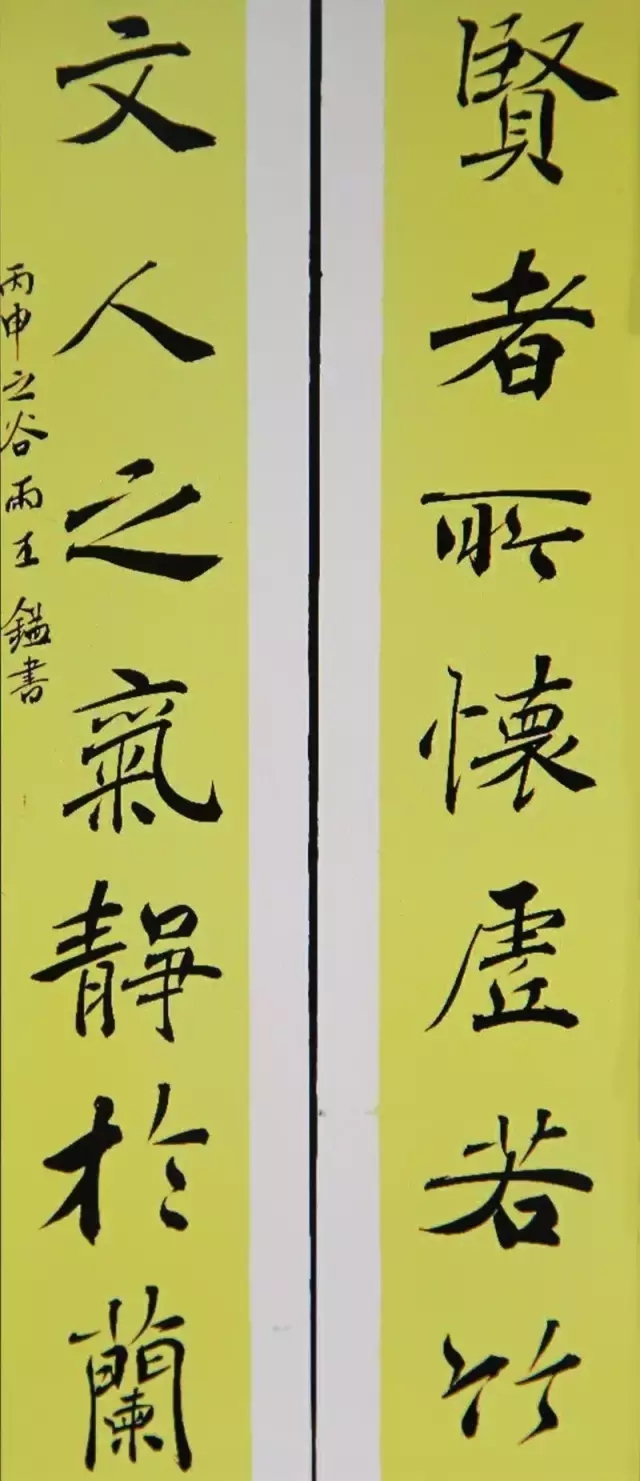 賢者所懷虛若竹
文人之氣靜於蘭
丙申之谷雨王鑑書